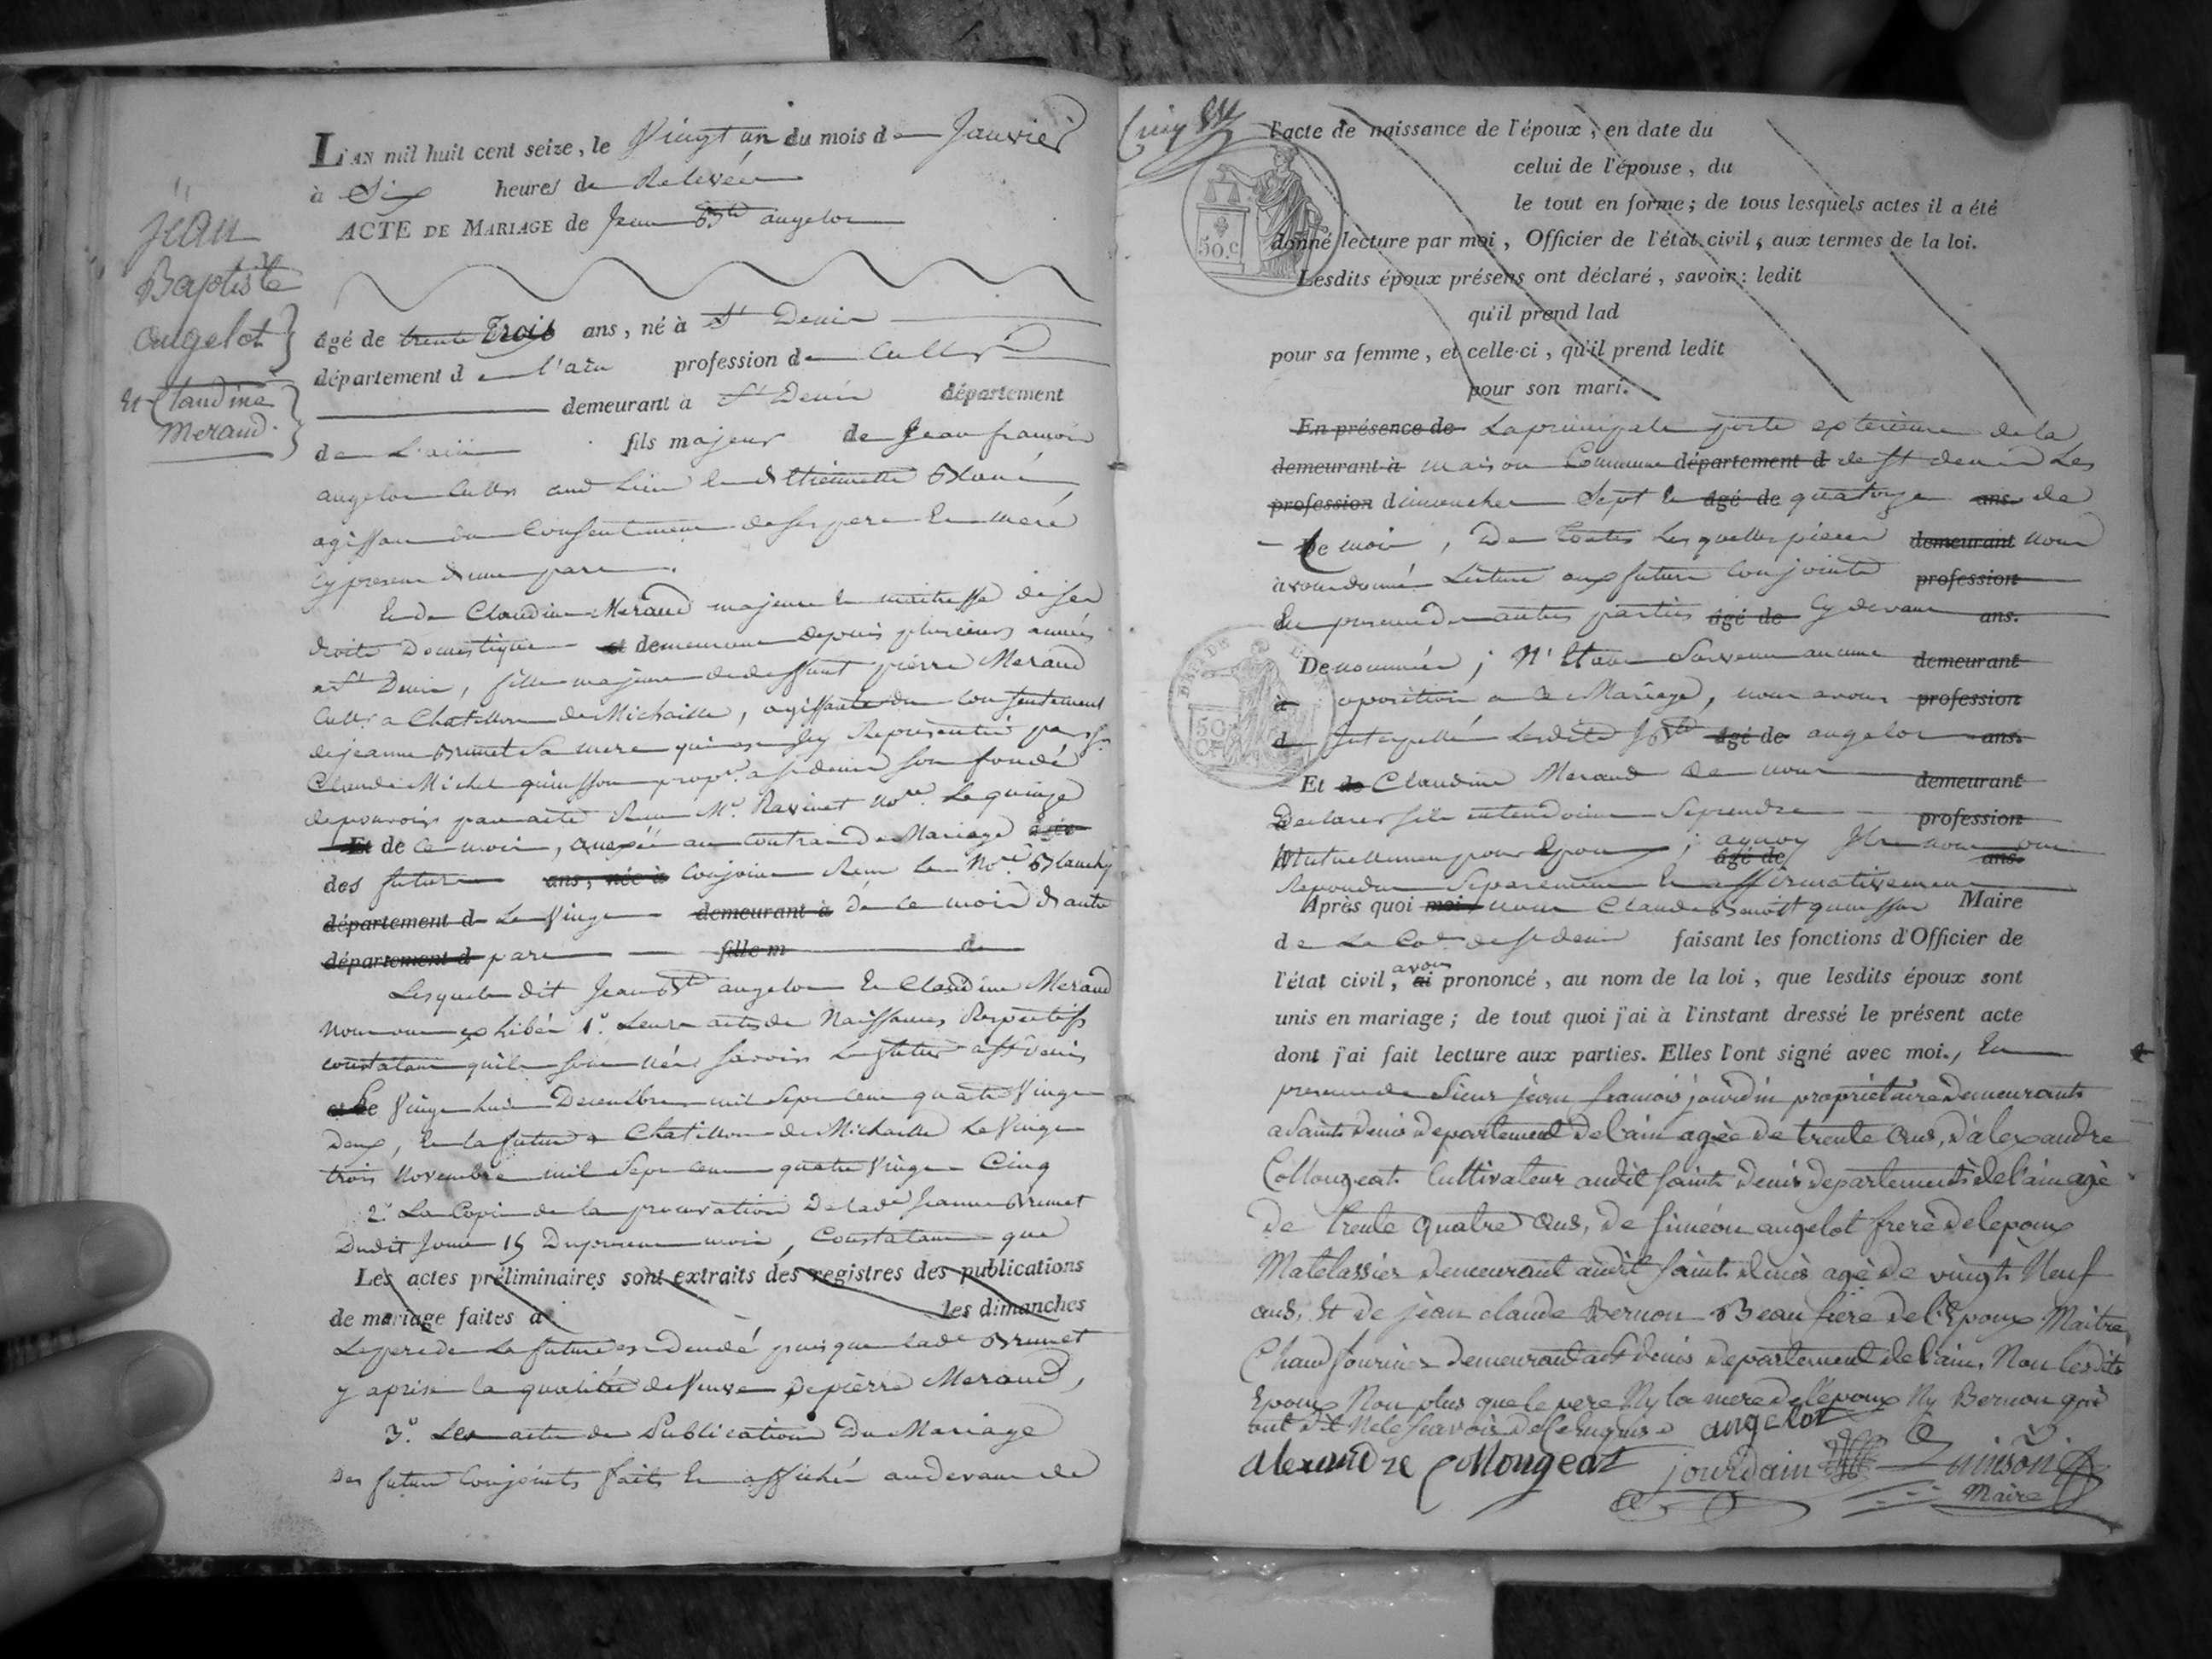 Jean
Baptiste
angelot
et Claudine
Meraud.
L'AN mil huit cent seize, le Vingt un du mois de Janvier
à Six heures de Relevée
ACTE DE MARIAGE de Jean Bte angelot
âgé de trente Trois ans, né à St Denis
département de l'ain profession de Cultr
demeurant à St Denis département
de L'ain fils majeur de Jean françois
angelot Cultr aud Lieu et d'Etiennette Blanc
agissant du Consentement de ses pere et mere
Cy present d'une part.
Et de Claudine Meraud majeure et maitresse de ses
droits Domestique et demeurant depuis plusieurs années
a St Denis, fille majeure de deffunt pierre Meraud
Cultr a Chatillon de Michaille, agissante du Consentement
de jeanne Brunet Sa mere qui est icy Représentée par Sr
Claude Michel quinsson propre. a St denis son fondé
de pouvoir par acte Reçu Me. Ravinet Nore. Le quinze
Et de Ce mois, anexée au contrat de Mariage âgée
des futurs ans, née à Conjoints Reçu le Nore Blanchy
département d Le Vingt demeurant à de ce mois d'autre
département d part fille m de
Lesquels dit Jean Bte angelot et Claudine Meraud
Nous ont exhibé 1º. Leurs actes de Naissances Respectifs
constatant qu'ils sont nés savoir Le futur a St Denis
et Le Vingt huit Decembre mil Sept cent quatre Vingt
Deux, et la future a Chatillon de Michaille Le Vingt
trois Novembre mil Sept cent quatre Vingt Cinq
2º. La Copie de la procuration De lade Jeanne Brunet
Dudit Jour 15 Du présent mois, Constatant que
Les actes préliminaires sont extraits des registres des publications
de mariage faites à les dimanches
Le pere de La future est décédé puisque lade Brunet
y a pris la qualité de Veuve de pierre Meraud,
3º. Les actes de Publication Du Mariage
Des futurs Conjoints faits et affichés au devant de
Cinq
50.c
l'acte de naissance de l'époux, en date du
celui de l'épouse, du
le tout en forme; de tous lesquels actes il a été
donné lecture par moi, Officier de l'état civil, aux termes de la loi.
Lesdits époux présens ont déclaré, savoir: ledit
qu'il prend lad
pour sa femme, et celle-ci, qu'il prend ledit
pour son mari.
En présence de La principale porte exterieure de la
demeurant à maison Commune département d de St denis Les
profession dimanches Sept et âgé de quatorze ans. de
Ce mois, De toutes Lesquelles pièces demeurant nous
avons donné Lecture aux futurs Conjoints profession
En presence des autres parties âgé de Cy devant ans.
Denommées; N'Etant Survenu aucune demeurant
à oposition a ce Mariage, nous avons profession
d Interpellé Lesdits J Bte âgé de angelot ans.
Et de Claudine Meraud de nous demeurant
Declarer s'ils entendoient Se prendre profession
Mutuellement pour Epoux; aquoy Ils nous ont
âgé de ans.
Repondu Séparement et affirmativement
Après quoi moi, nous Claude Benoit quinsson Maire
de La Cone de St denis faisant les fonctions d'Officier de
l'état civil, ai avons prononcé, au nom de la loi, que lesdits époux sont
unis en mariage; de tout quoi j'ai à l'instant dressé le présent acte
dont j'ai fait lecture aux parties. Elles l'ont signé avec moi., En
presence de Sieur jean francois jourdin propriétaire demeurant
a Saint Denis departement de l'ain agée de trente ans, d'alexandre
Collongeat Cultivateur audit Saint Denis departement de l'ain agé
de trente quatre ans, de Siméon angelot frere de lepoux
Matelassier demeurant audit Saint denis agé de vingt Neuf
ans, Et de jean claude Bernon Beau frere de l'Epoux Maitre
Chaud fournier demeurant a St denis departement de l'ain, Non lesdits
Epoux Non plus que le pere Ny la mere de l'époux Ny Bernon qui
ont dit Ne le sçavoir de ce Enquis. angelot
alexandre Collongeat jourdain Quinson
Maire